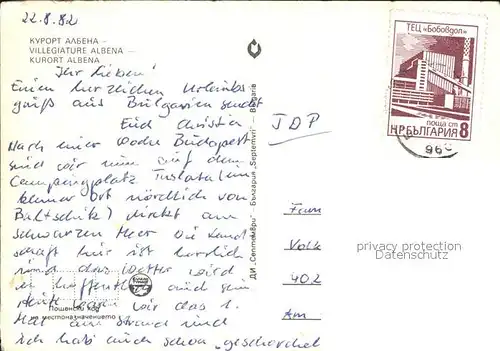 22.8.82
КУРОРТ АЛБЕНА –
VILLEGIATURE ALBENA –
KURORT ALBENA
Ihr Lieben!
Einen herzlichen Urlaubs-
gruß aus Bulgarien sendet
Euch Christia
Nach einer Woche Budapest
sind wir nun auf dem
Campingplatz (ein
kleiner Ort nördlich von
Baltschik) direkt am
schwarzen Meer. Die Land-
schaft hier ist herrlich
und das Wetter wird
es hoffentlich auch
Heute lagen wir das 1.
Mal am Strand und
ich hab mich schon "geschockt
ДИ „Септември" – България „Septemvri" – Bulgaria
Пощенски код
на местоназначението
JDP
Frau
Volk
402
Am
ТЕЦ „Бобовдол"
поща ст 8
НР БЪЛГАРИЯ
privacy protection
Datenschutz